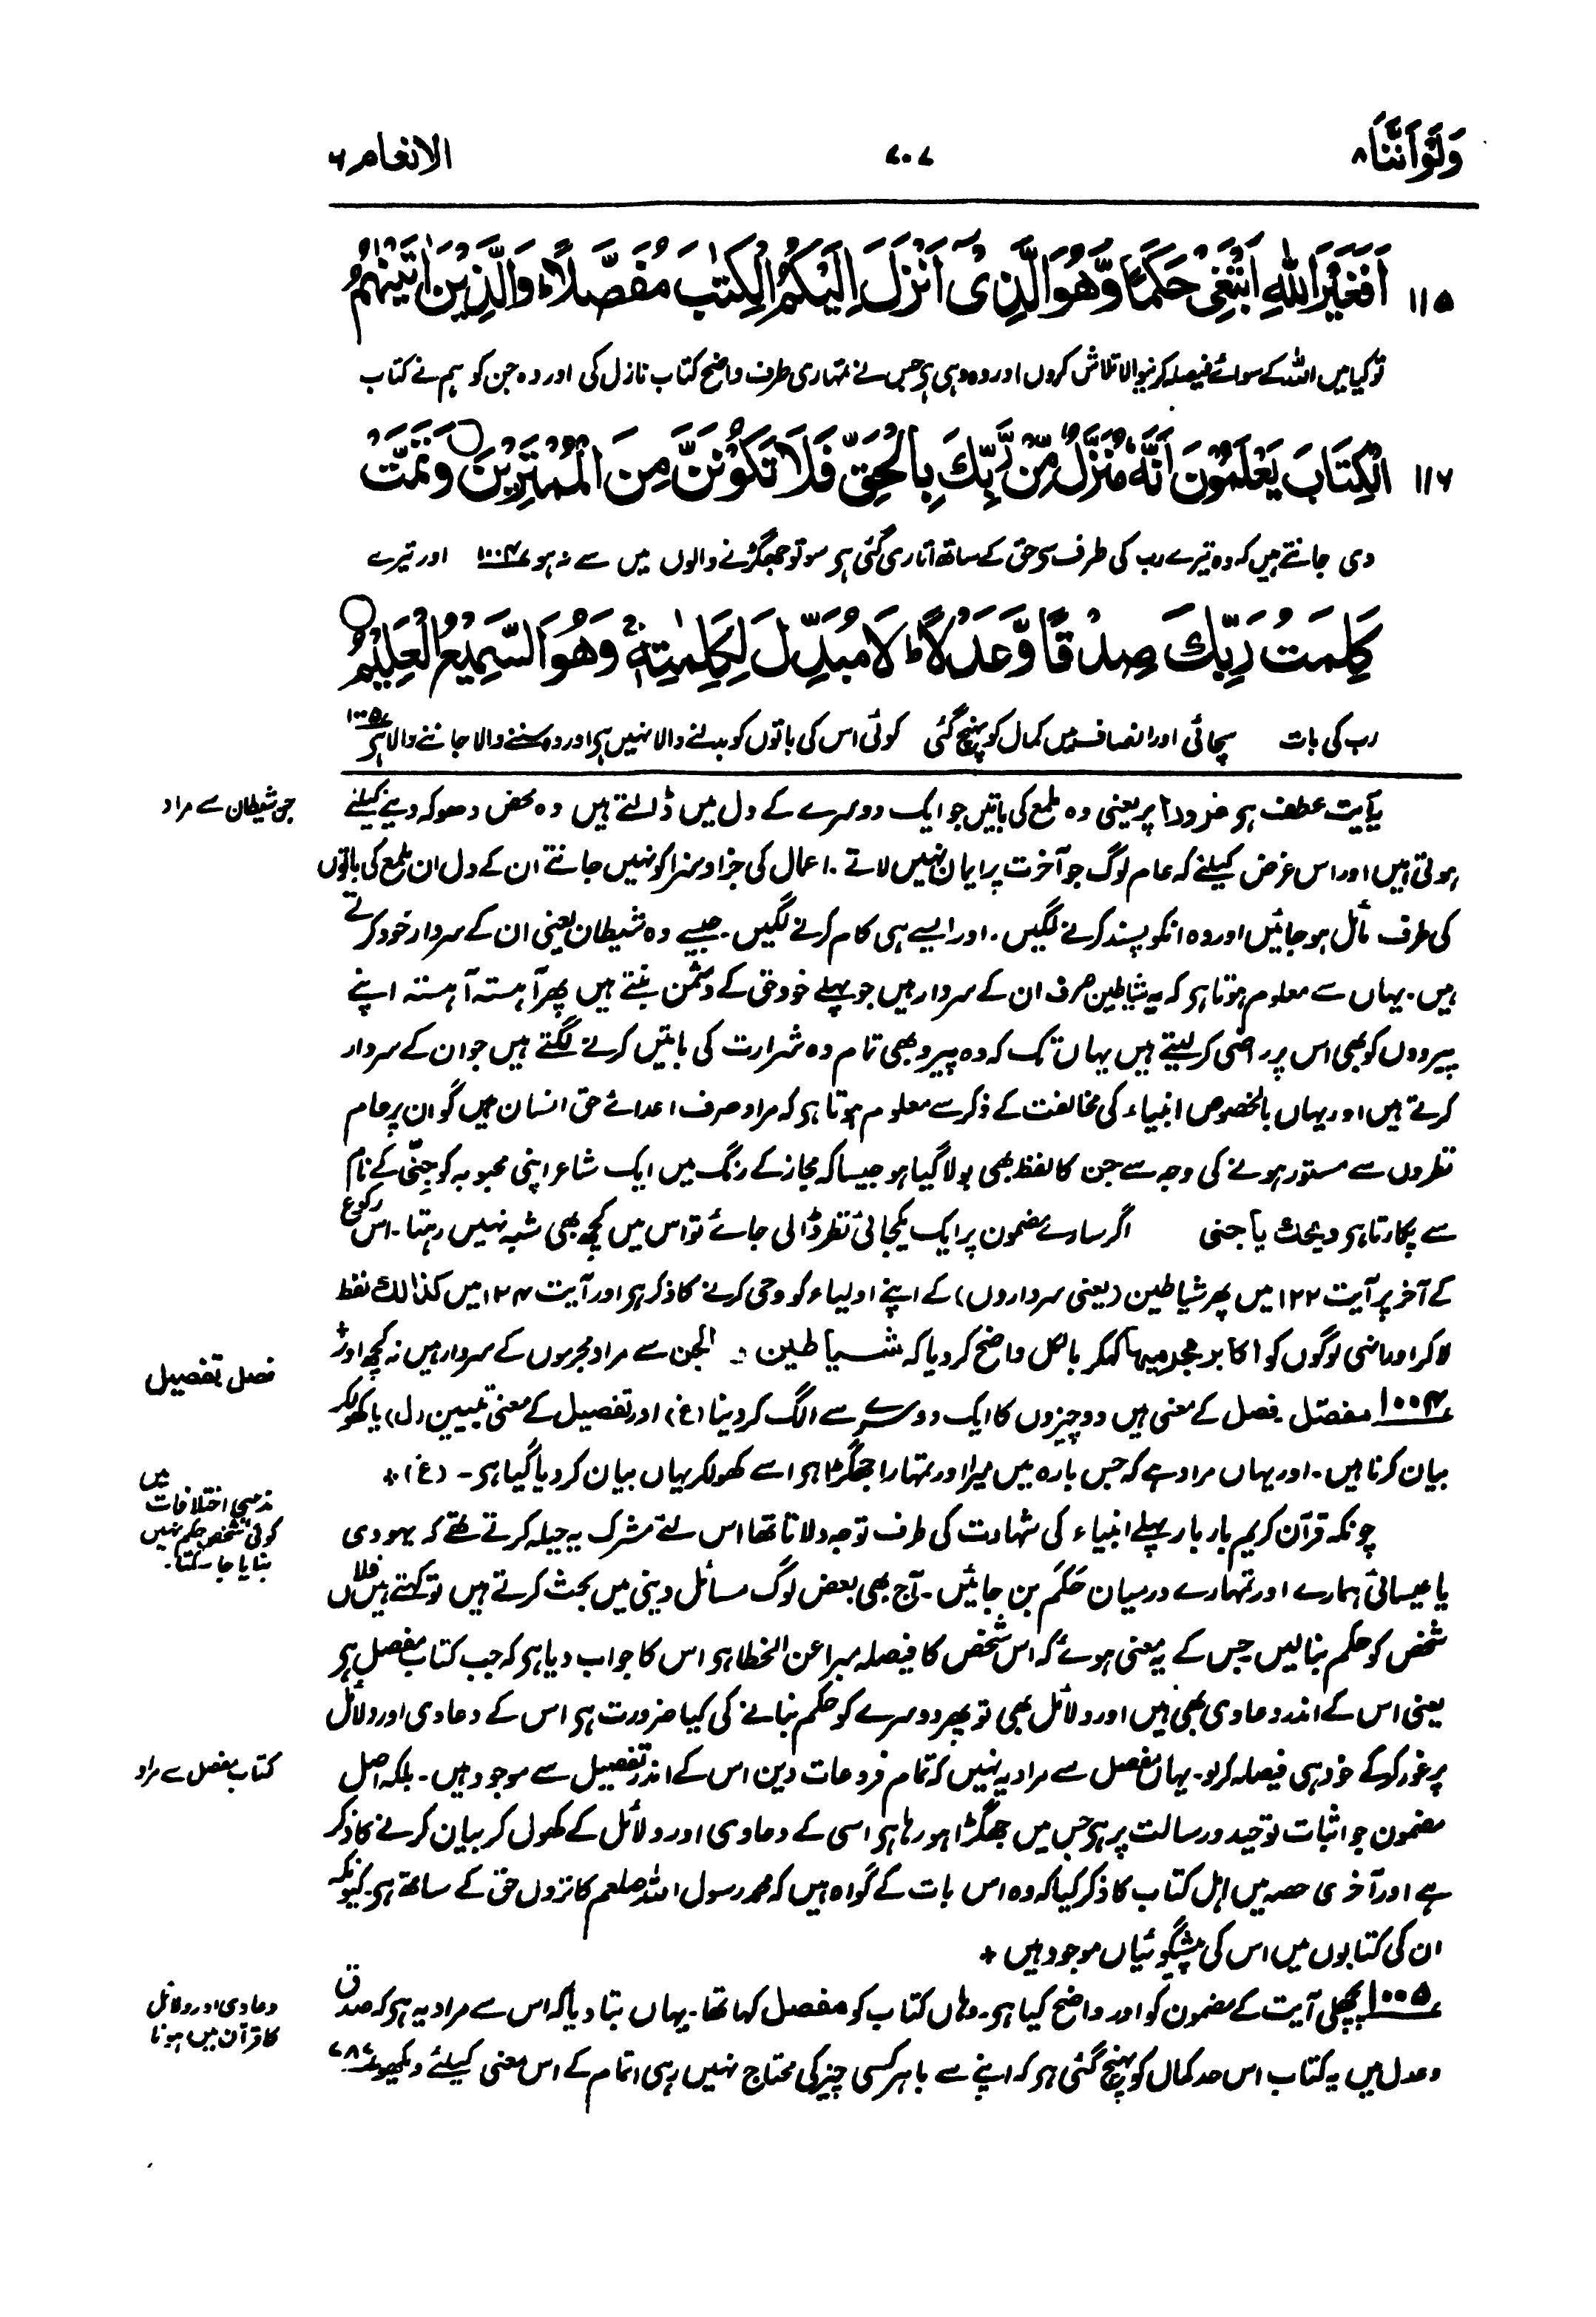 وَلَوْ اَنَّنَا ۸
۷۰۷
الانعام ۶
۱۱۵ اَفَغَيْرَ اللّٰهِ اَبْتَغِيْ حَكَمًا وَّهُوَ الَّذِيْٓ اَنْزَلَ اِلَيْكُمُ الْكِتٰبَ مُفَصَّلًا ؕ وَالَّذِيْنَ اٰتَيْنٰهُمُ
تو کیا میں اللہ کے سوائے فیصلہ کرنیوالا تلاش کروں اور وہ وہی ہی جس نے تمہاری طرف واضح کتاب نازل کی اور وہ جن کو ہم نے کتاب
۱۱۶ الْكِتَابَ يَعْلَمُوْنَ اَنَّهٗ مُنَزَّلٌ مِّنْ رَّبِّكَ بِالْحَقِّ فَلَا تَكُوْنَنَّ مِنَ الْمُمْتَرِيْنَ ۝ وَتَمَّتْ
دی جانتے ہیں کہ وہ تیرے رب کی طرف سی حق کے ساتھ اتاری گئی ہی سو تو جھگڑنے والوں میں سے نہ ہو ۱۰۰۴ اور تیرے
كَلِمَتُ رَبِّكَ صِدْقًا وَّعَدْلًا ؕ لَا مُبَدِّلَ لِكَلِمٰتِهٖ ۚ وَهُوَ السَّمِيْعُ الْعَلِيْمُ ۝
رب کی بات سچائی اور انصاف میں کمال کو پہنچ گئی کوئی اس کی باتوں کو بدلنے والا نہیں ہی اور وہ سننے والا جاننے والا ہی ۱۰۰۵
یہ آیت عطف ہی غرورا پر یعنی وہ ملمع کی باتیں جو ایک دوسرے کے دل میں ڈالتے ہیں وہ محض دھوکہ دینے کیلئے
جن شیطان سے مراد
ہوتی ہیں اور اس غرض کیلئے کہ عام لوگ جو آخرت پر ایمان نہیں لاتے ۔ اعمال کی جزا وسزا کو نہیں جانتے ان کے دل ان ملمع کی باتوں
کی طرف مائل ہو جائیں اور وہ انکو پسند کرنے لگیں ۔ اور ایسے ہی کام کرنے لگیں ۔ جیسے وہ شیطان یعنی ان کے سردار خود کرتے
ہیں ۔ یہاں سے معلوم ہوتا ہی کہ یہ شیاطین صرف ان کے سردار ہیں جو پہلے خود حق کے دشمن بنتے ہیں پھر آہستہ آہستہ اپنے
پیرووں کو بھی اس پر راضی کر لیتے ہیں یہاں تک کہ وہ پیرو بھی تمام وہ شرارت کی باتیں کرنے لگتے ہیں جو ان کے سردار
کرتے ہیں اور یہاں بالخصوص انبیاء کی مخالفت کے ذکر سے معلوم ہوتا ہی کہ مراد صرف اعدائے حق انسان ہیں گو ان پر عام
نظروں سے مستور ہونے کی وجہ سے جن کا لفظ بھی بولا گیا ہو جیسا کہ مجاز کے رنگ میں ایک شاعر اپنی محبوبہ کو جِنّی کے نام
سے پکارتا ہی ویحك یا جنی اگر سارے مضمون پر ایک یکجائی نظر ڈالی جائے تو اس میں کچھ بھی شبہ نہیں رہتا ۔ اس رکوع
کے آخر پر آیت ۱۲۲ میں پھر شیاطین (یعنی سرداروں) کے اپنے اولیاء کو وحی کرنے کا ذکر ہی اور آیت ۱۲۴ میں کذالك لفظ
لاکر اور انہی لوگوں کو اکابر مجرمیہا کہکر بالکل واضح کر دیا کہ شیاطین الجن سے مراد مجرموں کے سردار ہیں نہ کچھ اور +
۱۰۰۴ مفصّل ۔ فصل کے معنی ہیں دو چیزوں کا ایک دوسرے سے الگ کر دینا (غ) اور تفصیل کے معنی تبیین (ل) یا کھولکر
فصل تفصیل
بیان کرنا ہیں ۔ اور یہاں مراد ہے کہ جس بارہ میں میرا اور تمہارا جھگڑا ہی اسے کھولکر یہاں بیان کر دیا گیا ہی ۔ (غ) +
چونکہ قرآن کریم بار بار پہلے انبیاء کی شہادت کی طرف توجہ دلاتا تھا اس لئے مشرک یہ حیلہ کرتے تھے کہ یہودی
مذہبی اختلافات میں
کوئی شخص حکم نہیں
بنایا جا سکتا ۔
یا عیسائی ہمارے اور تمہارے درمیان حَکَم بن جائیں ۔ آج بھی بعض لوگ مسائل دینی میں بحث کرتے ہیں تو کہتے ہیں فلاں
شخص کو حکم بنالیں جس کے یہ معنی ہوئے کہ اس شخص کا فیصلہ مبرا عن الخطا ہی اس کا جواب دیا ہی کہ جب کتاب مفصل ہی
یعنی اس کے اندر دعاوی بھی ہیں اور دلائل بھی تو پھر دوسرے کو حکم بنانے کی کیا ضرورت ہی اس کے دعاوی اور دلائل
پر غور کرکے خود ہی فیصلہ کرلو ۔ یہاں مفصل سے مراد یہ نہیں کہ تمام فروعات دین اس کے اندر تفصیل سے موجود ہیں ۔ بلکہ اصل
کتاب مفصل سے مراد
مضمون جو اثبات توحید ورسالت پر ہی جس میں جھگڑا ہو رہا ہی اسی کے دعاوی اور دلائل کے کھول کر بیان کرنے کا ذکر
ہے اور آخری حصہ میں اہل کتاب کا ذکر کیا کہ وہ اس بات کے گواہ ہیں کہ محمد رسول اللہ صلعم کا نزول حق کے ساتھ ہی ۔ کیونکہ
ان کی کتابوں میں اس کی پیشگوئیاں موجود ہیں +
۱۰۰۵ پچھلی آیت کے مضمون کو اور واضح کیا ہی ۔ وہاں کتاب کو مفصل کہا تھا ۔ یہاں بتا دیا کہ اس سے مراد یہ ہی کہ صدق
دعاوی اور دلائل
کا قرآن میں ہونا
وعدل میں یہ کتاب اس حد کمال کو پہنچ گئی ہی کہ اپنے سے باہر کسی چیز کی محتاج نہیں رہی اتمام کے اس معنی کیلئے دیکھو ۷۸۷